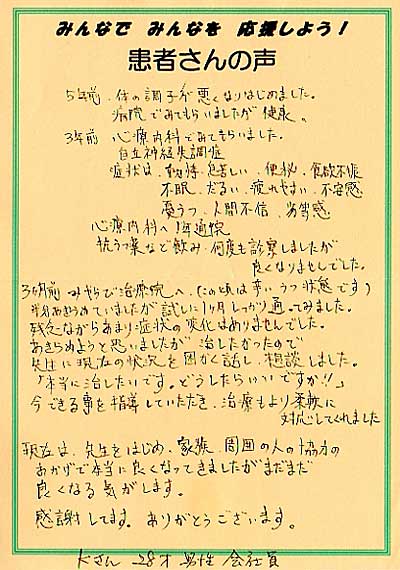 みんなで みんなを 応援しよう！
患者さんの声
5年前、体の調子が悪くなりはじめました。
病院でみてもらいましたが健康。
3年前 心療内科でみてもらいました。
自立神経失調症
症状は、動悸・息苦しい、便秘、食欲不振
不眠、だるい、疲れやすい、不安感
憂うつ、人間不信、劣等感
心療内科へ1年通院
抗うつ薬など飲み、何度も診察しましたが
良くなりませんでした。
3ヶ月前 みやちで治療院へ、(この頃は辛いうつ状態です)
半分あきらめていましたが試しに1ヶ月しっかり通ってみました。
残念ながらあまり症状の変化はありませんでした。
あきらめようと思いましたが 治したかったので
先生に現在の状況を細かく話し、相談しました。
「本当に治したいです。どうしたらいいですか!!」
今できる事を指導していただき、治療もより柔軟に
対応してくれました
現在は、先生をはじめ、家族、周囲の人の協力の
おかげで本当に良くなってきましたがまだまだ
良くなる気がします。
感謝してます。ありがとうございます。
Kさん 28才 男性 会社員